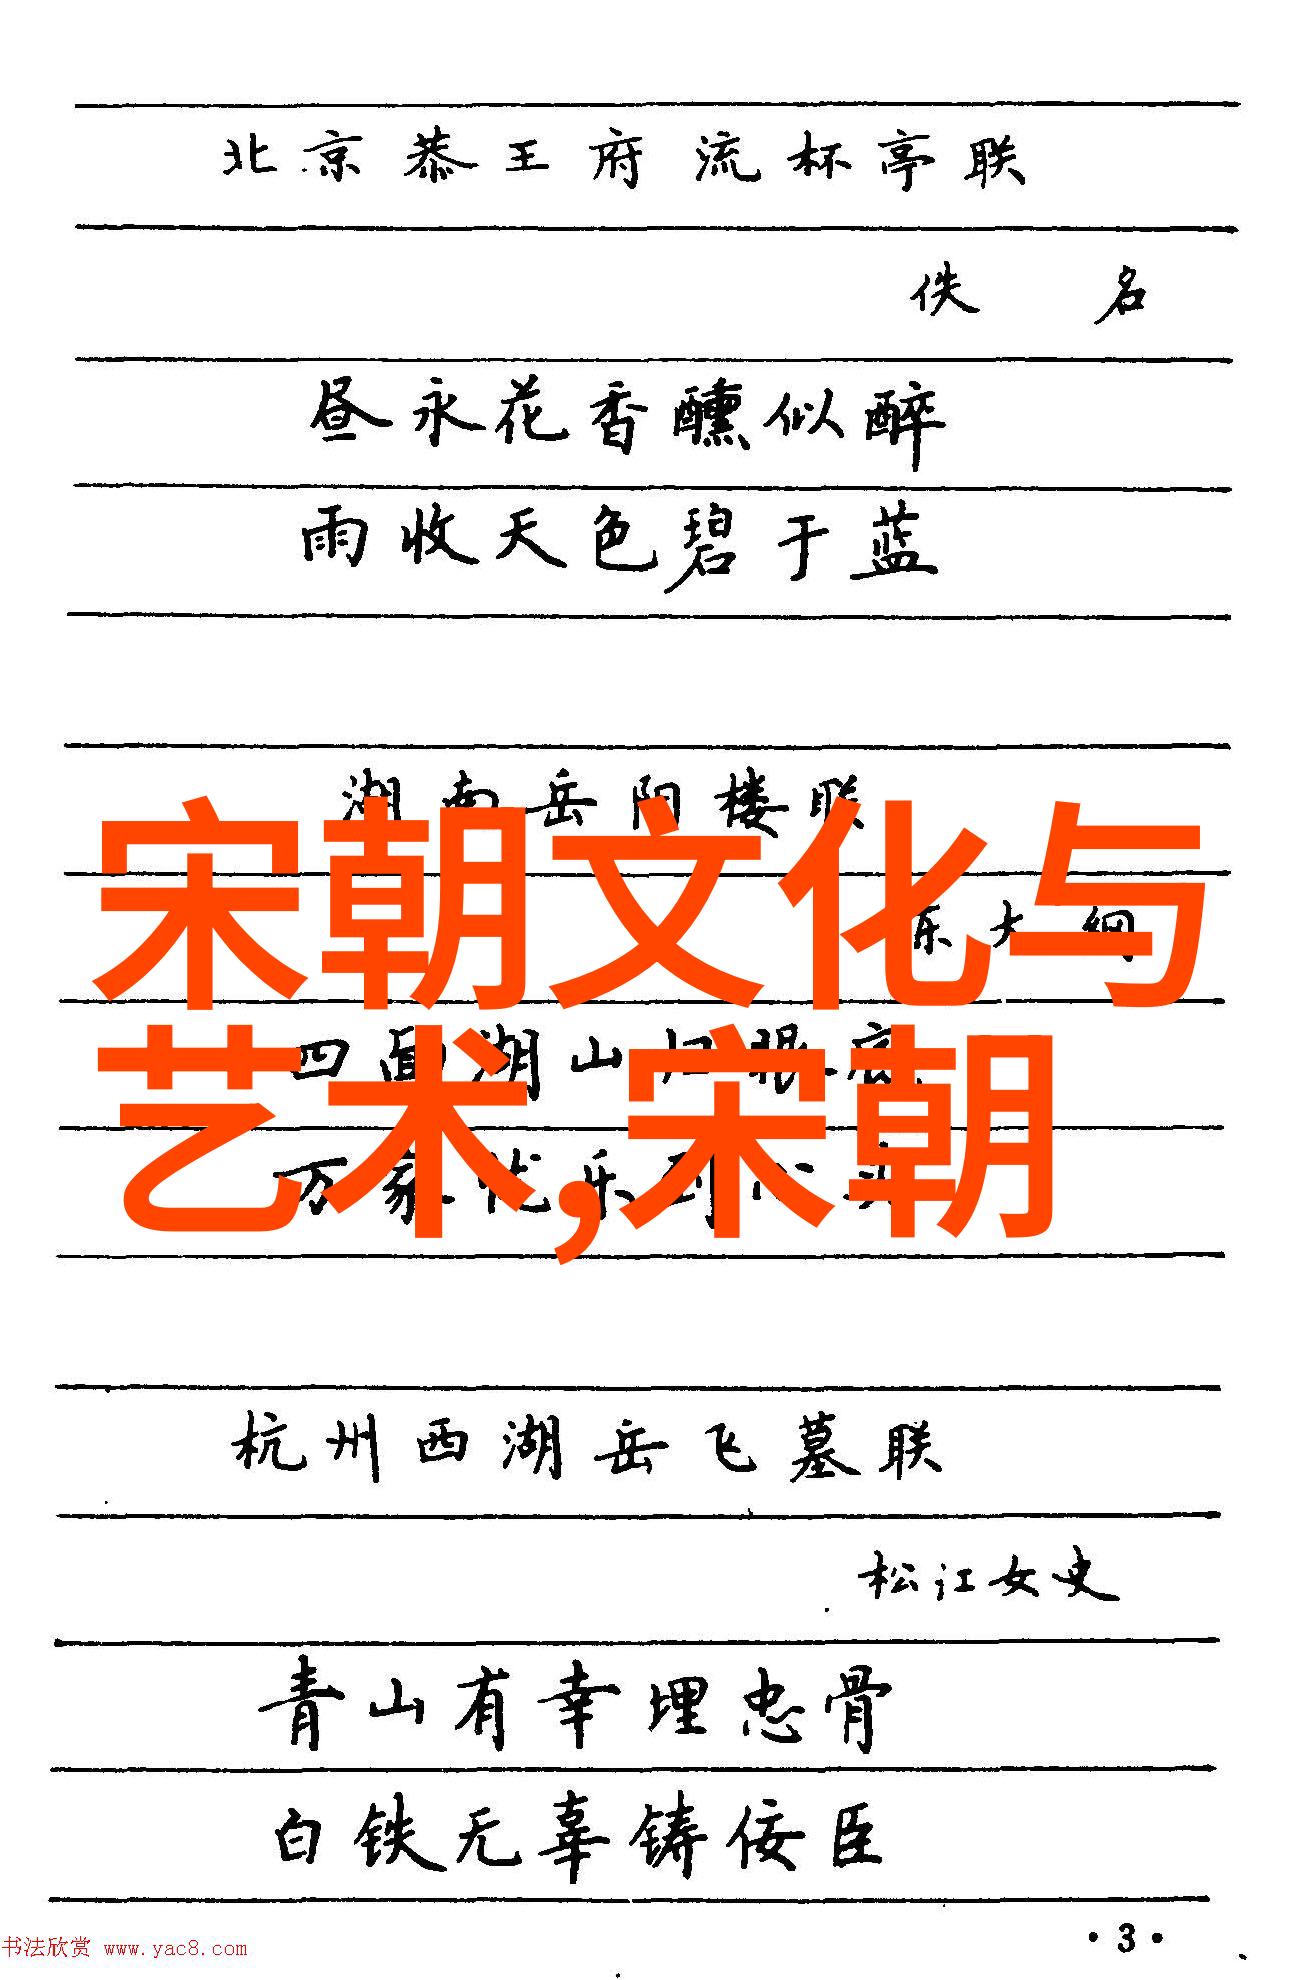 北京恭王府流杯亭联
佚 名
昼永花香醺似醉
雨收天色碧于蓝
湖南岳阳楼联
宋朝文化与
东大纲
四面湖山归眼底
艺术,宋朝
万家忧乐到心头
杭州西湖岳飞墓联
松江女史
青山有幸埋忠骨
白铁无辜铸佞臣
·3·
书法欣赏 www.yac8.com